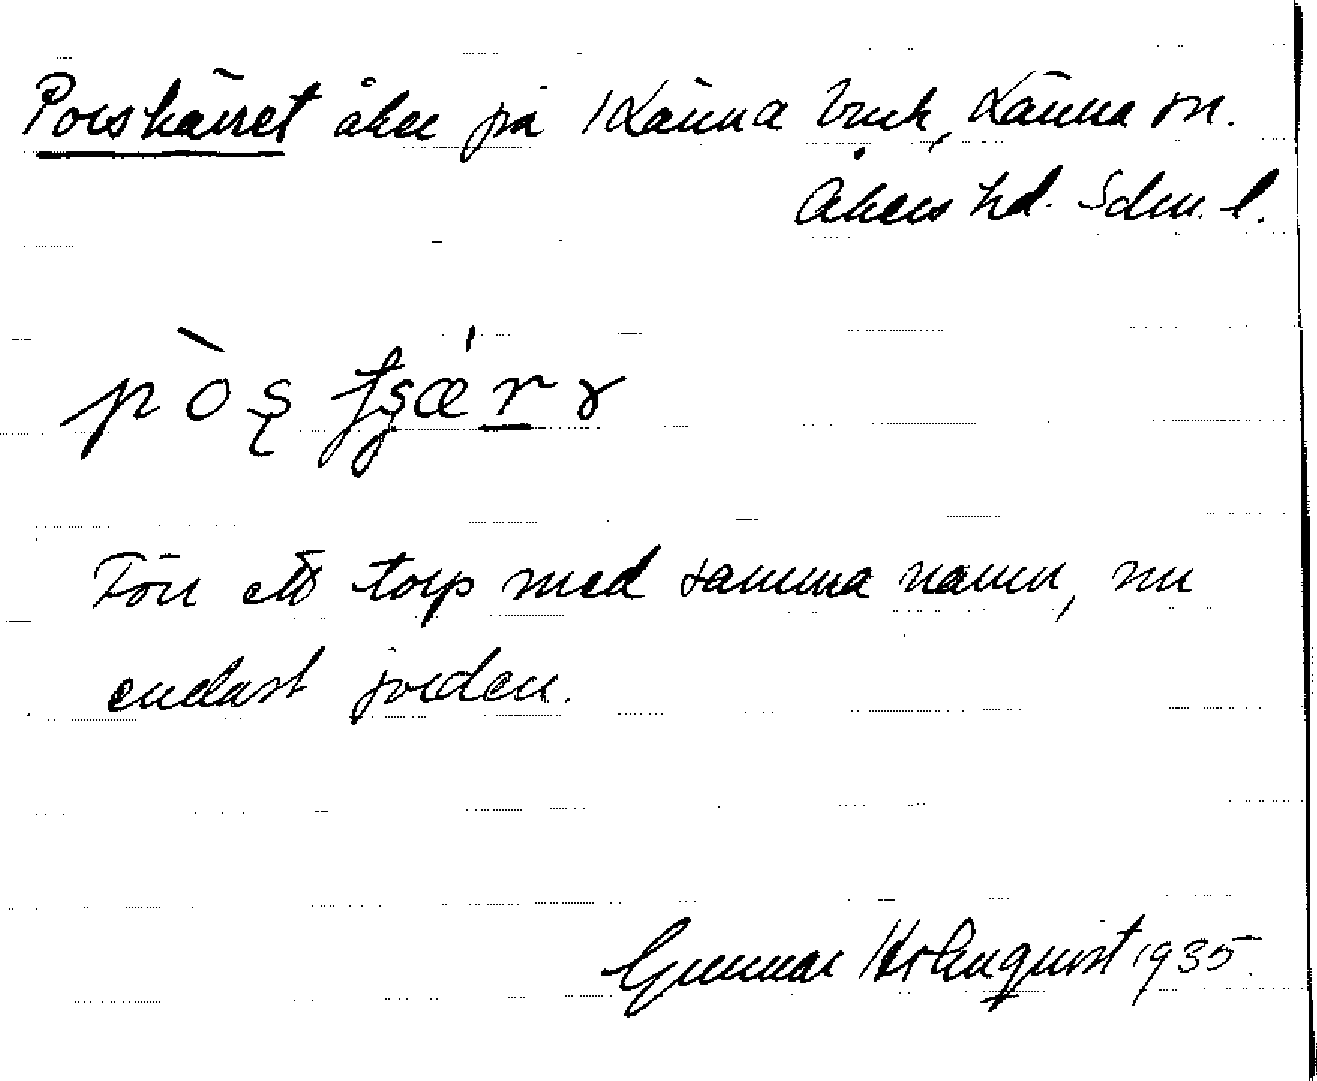 Porskärret åker på Länna bruk, Länna sn.
Åkers hd. Sdm. l.
Förr ett torp med samma namn, nu
endast jorden.
Gunnar Holmquist 1935.